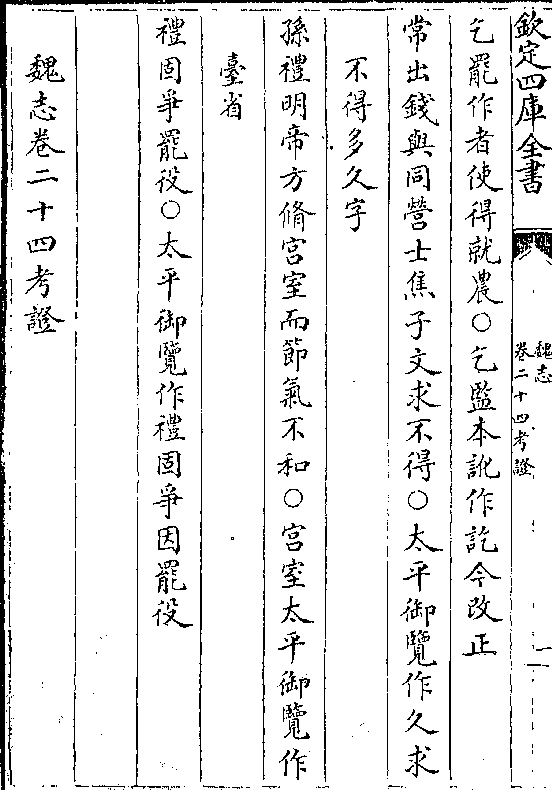 欽定四庫全書
魏志
卷二十四考證
一
乞罷作者使得就農○乞監本訛作訖今改正
常出錢與同營士焦子文求不得○太平御覽作久求
不得多久字
孫禮明帝方脩宫室而節氣不和○宫室太平御覽作
臺省
禮固爭罷役○太平御覽作禮固爭因罷役
魏志卷二十四考證